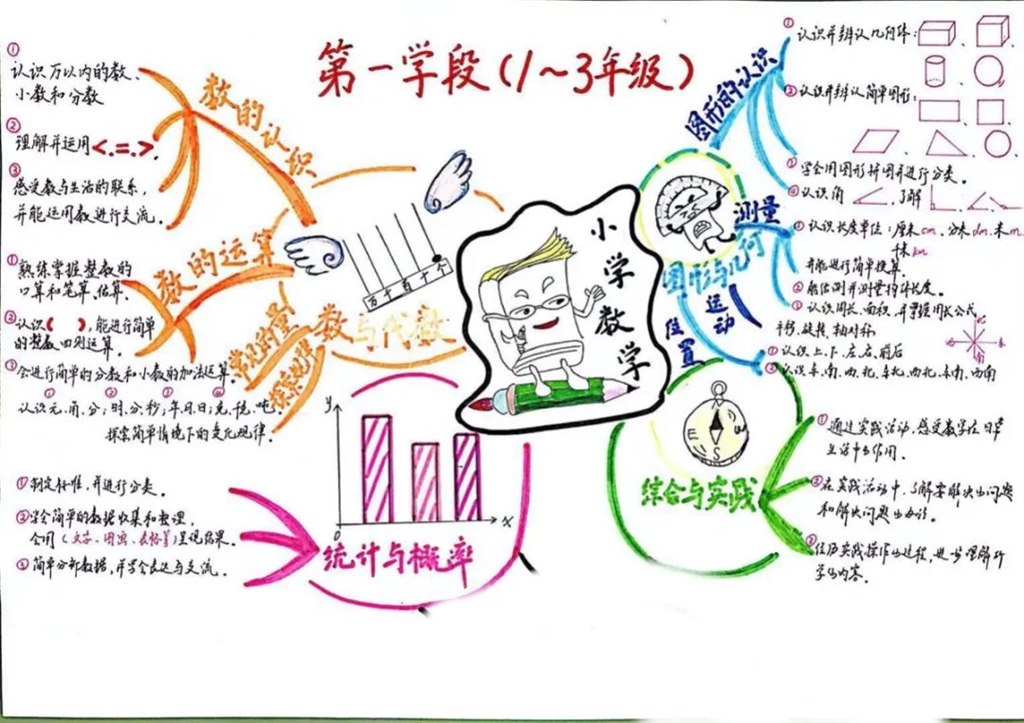 第一学段(1～3年级)
小学数学
数与代数
数的认识
①
认识万以内的数、
小数和分数
②
理解并运用<.=.>.
③
感受数与生活的联系,
并能运用数进行交流.
数的运算
①
熟练掌握整数的
口算和笔算、估算.
②认识( ),能进行简单
的整数四则运算.
③会进行简单的分数和小数的加法运算.
常见的量
① ② ③ ④
认识元、角、分;时、分、秒;年、月、日;克、千克、吨.
探索规律
探索简单情境下的变化规律.
万 千 百 十 个
图形与几何
图形的认识
①认识并辨认几何体:
②认识并辨认简单图形:
③学会用图形拼图并进行分类.
④认识角 ,了解
测量
①认识长度单位:厘米cm、分米dm、米m、
千米km
并能进行简单换算.
②能估测并测量物体长度.
③认识周长、面积,并掌握周长公式
运动
平移、旋转、轴对称
位置
①认识上、下、左、右、前后
②认识东、南、西、北、东北、西北、东南、西南
统计与概率
y
x
0
①制定标准,并进行分类.
②学会简单的数据收集和整理,
会用(文字、图画、表格等)呈现结果.
③简单分析数据,并学会表达与交流.
综合与实践
N
E
S
W
①通过实践活动,感受数学在日常
生活中的作用.
②在实践活动中,了解要解决的问题
和解决问题的办法.
③经历实践操作的过程,进一步理解所
学的内容.